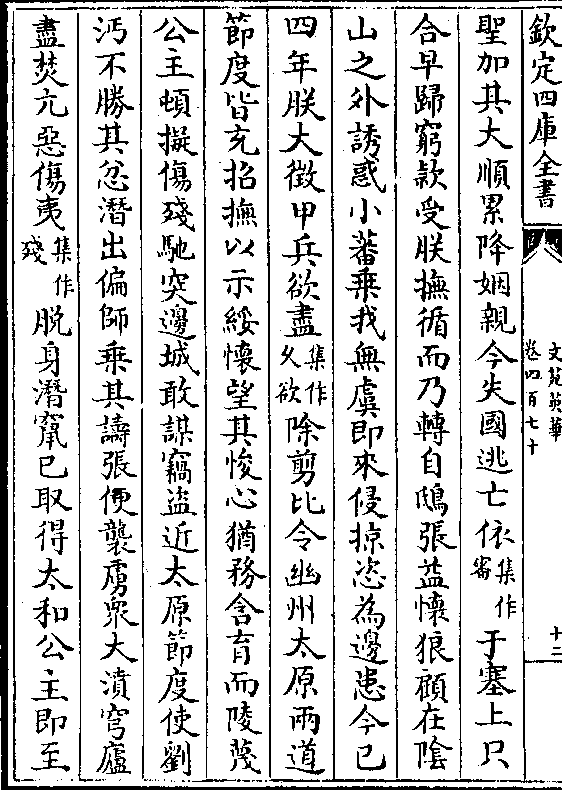 欽定四庫全書
文苑英華
卷四百七十
十二
聖加其大順累降姻親今失國逃亡依集作畨于塞上只
合早歸窮款受朕撫循而乃轉自鴟張益懷狼顧在陰
山之外誘惑小蕃乗我無虞即來侵掠恣為邊患今已
四年朕大徴甲兵欲盡集作乆欲除剪比令幽州太原兩道
節度皆充招撫以示綏懷望其悛心猶務含育而陵蔑
公主頓擬傷殘馳突邊城敢謀竊盗近太原節度使劉
沔不勝其忿潛出偏師乗其譸張便襲虜衆大潰穹廬
盡焚亢惡傷夷集作殘脱身潛竄已取得太和公主即至